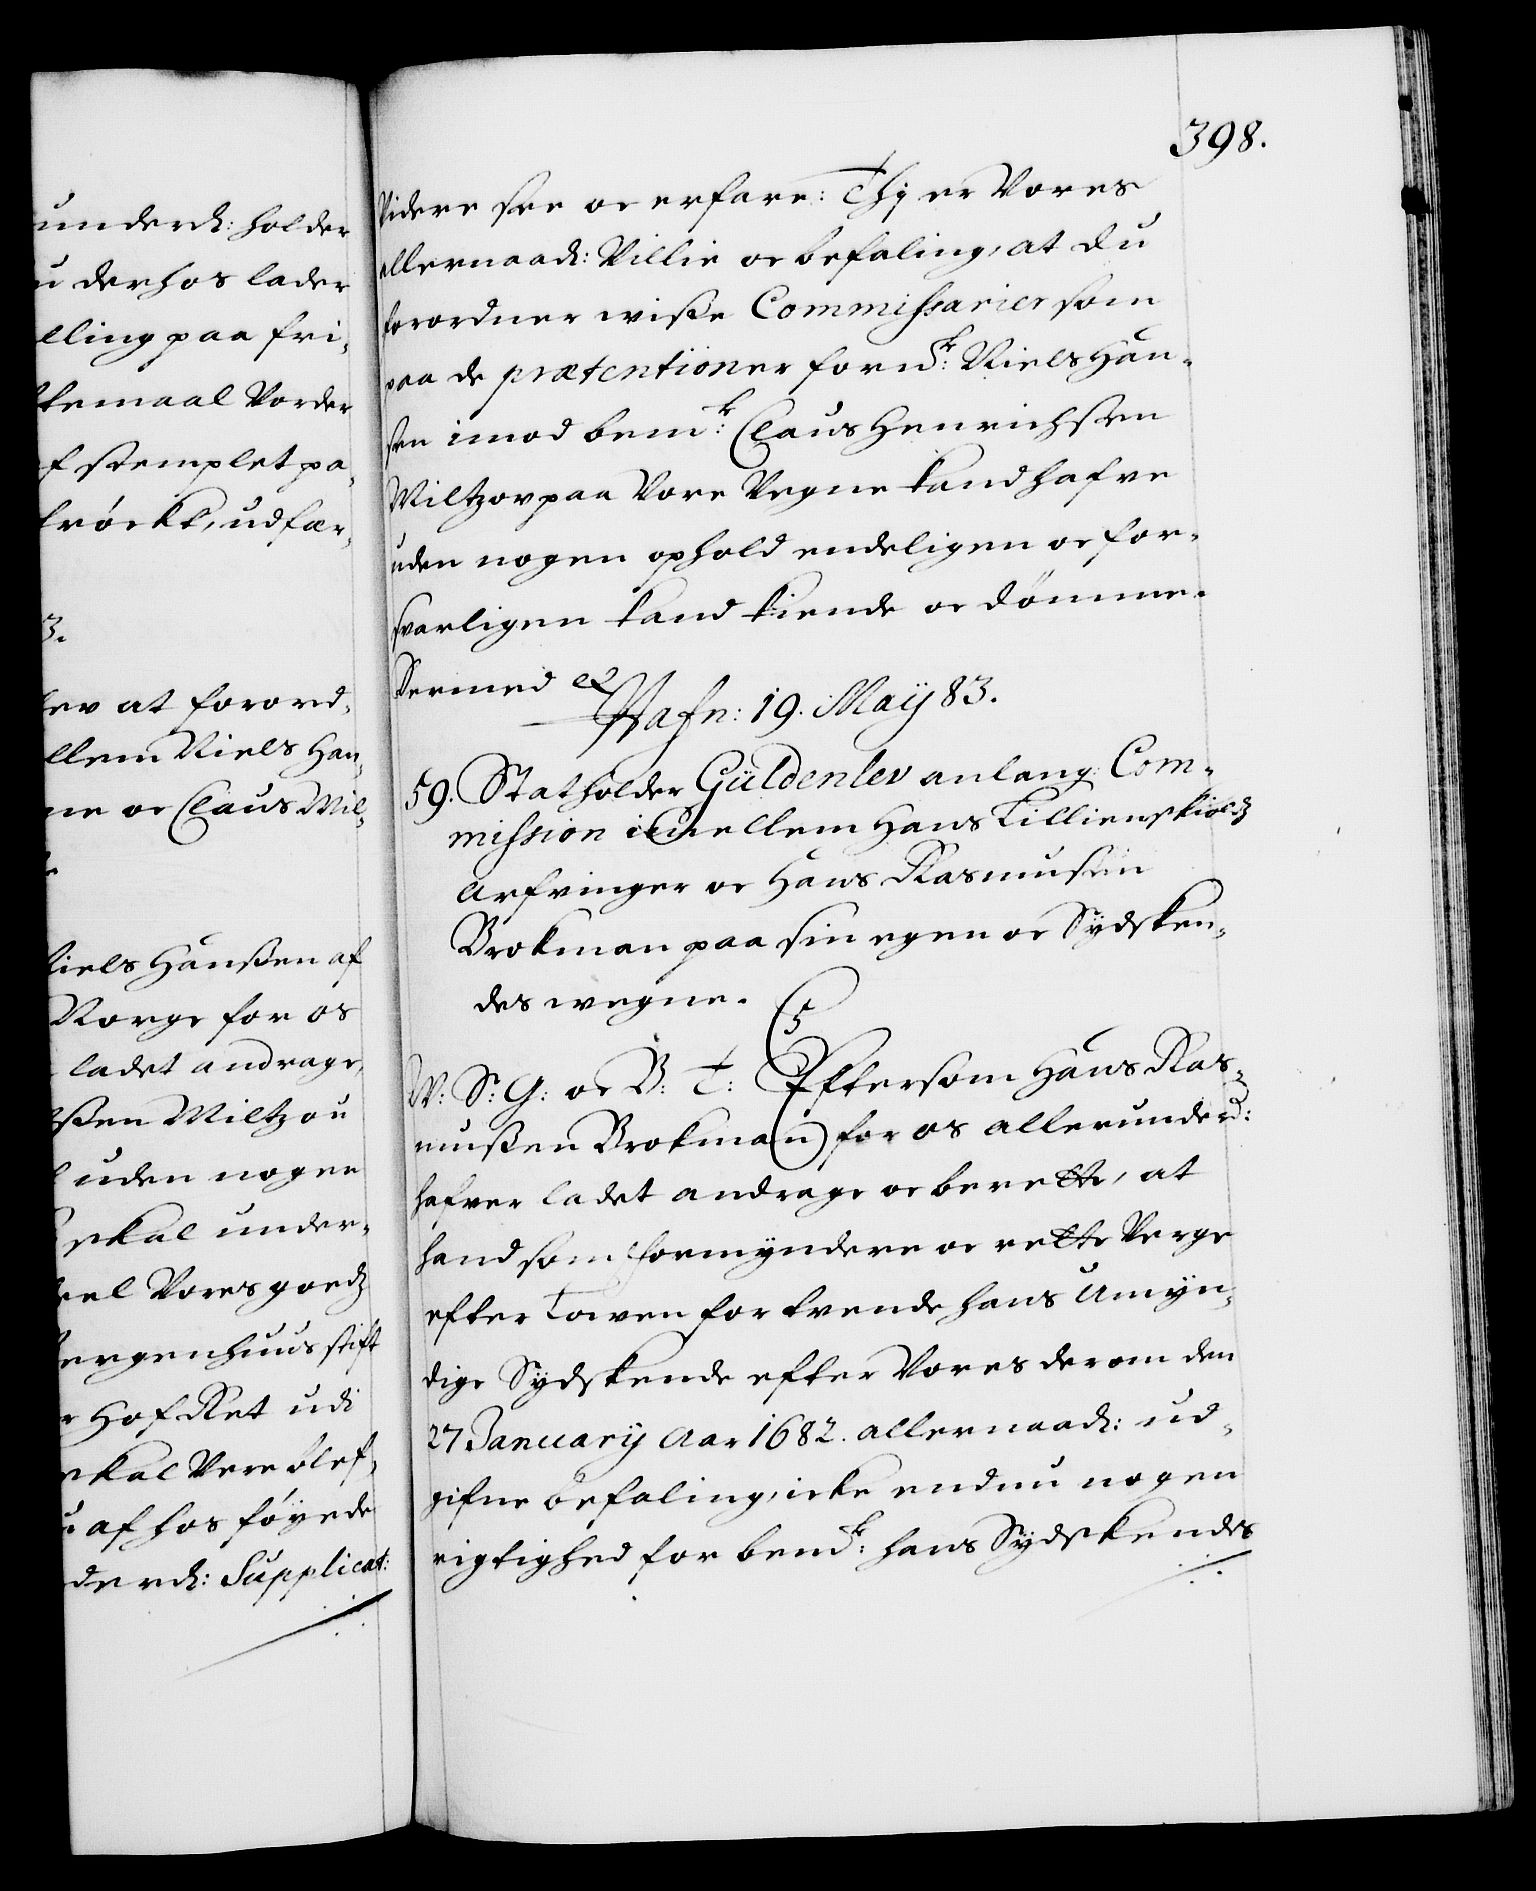 398.
underd: holder
u derhos lader
lling paa fri-
temaal Vorder
f stemplet pa-
tröckt, udfær-
3.
lev at forord-
llem Niels Han-
ne oc Claus Mil-
Niels Hanßen af
Norge for os
ladet andrage,
ßen Miltzou
uden nogen
skal under-
eel Vores goedz
ergenhuus stift
r Hof Ret udi
skal Vere blef-
u af hos föyede
derd: Supplicat:
Videre see oc erfare: Thj er Vores
allernaad: Villie oc befaling, at du
forordner wiße Commissarier som
paa de prætentioner fornd: Niels Han-
sen imod bemt: Claus Henrichsen
Miltzov paa Vore Vegne kand hafve
uden nogen ophold endeligen oc for-
svarligen kand kiende oc dömme.
Dermed etc
Hafn: 19. Maij 83.
59. Statholder Güldenlev anlang: Com-
mission imellem Hans Lillienskiolds
Arfvinger oc Hans Rasmusen
Brokman paa sin egen oc Sydsken-
des wegne.
C5
W: S: G: oc B: T: Eftersom Hans Ras-
mußen Brokman for os allerunderd:
hafver ladet andrage oc berette, at
hand som formyndere oc rette Verge
efter Loven for trende hans Umyn-
dige Sydskende efter Vores derom den
27 Januarij Aar 1682. allernaad: ud-
gifne befaling, icke endnu nogen
rigtighed for bemt: hans Sydskendes